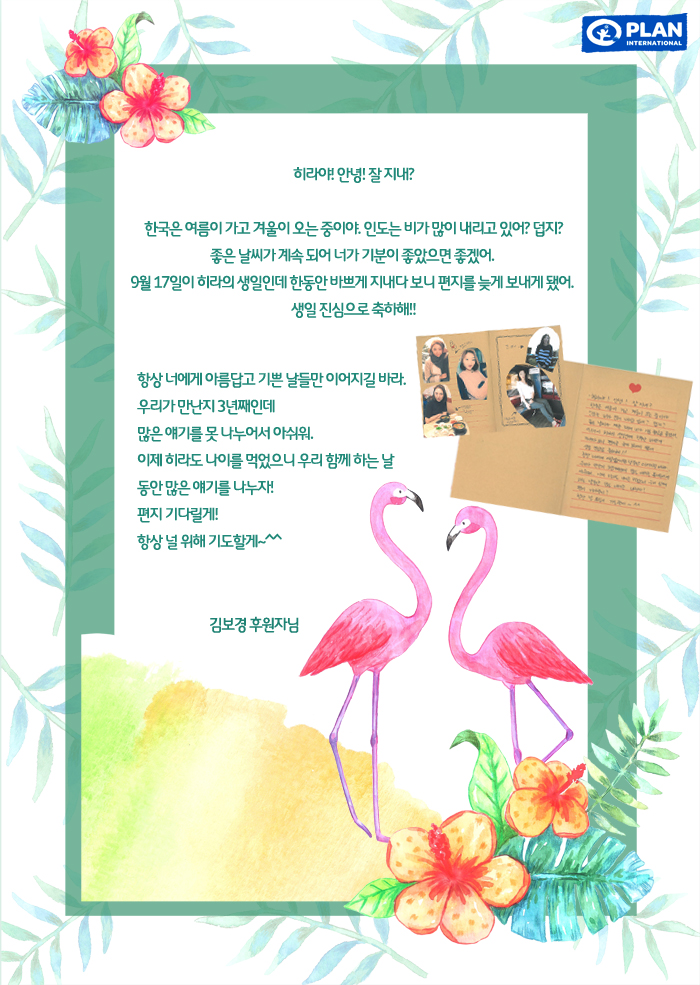 PLAN
INTERNATIONAL
히라야! 안녕! 잘 지내?
한국은 여름이 가고 겨울이 오는 중이야. 인도는 비가 많이 내리고 있어? 덥지?
좋은 날씨가 계속 되어 너가 기분이 좋았으면 좋겠어.
9월 17일이 히라의 생일인데 한동안 바쁘게 지내다 보니 편지를 늦게 보내게 됐어.
생일 진심으로 축하해!!
항상 너에게 아름답고 기쁜 날들만 이어지길 바라.
우리가 만난지 3년째인데
많은 얘기를 못 나누어서 아쉬워.
이제 히라도 나이를 먹었으니 우리 함께 하는 날
동안 많은 얘기를 나누자!
편지 기다릴게!
항상 널 위해 기도할게~^^
김보경 후원자님